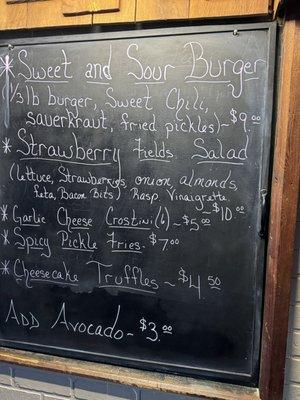 * Sweet and Sour Burger
(1/3 lb burger, Sweet Chili,
sauerkraut, fried pickles) ~ $9.00
* Strawberry Fields Salad
(lettuce, Strawberries, onion, almonds,
feta, Bacon Bits) Rasp. Vinaigrette.
~ $10.00
* Garlic Cheese Crostini (6) ~ $5.00
* Spicy Pickle Fries. $7.00
* Cheesecake Truffles ~ $4.50
Add Avocado ~ $3.00